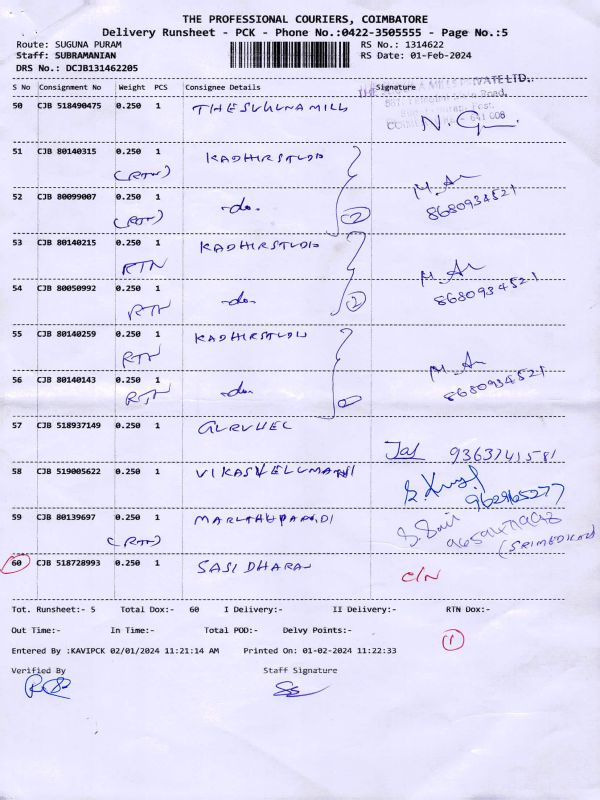 THE PROFESSIONAL COURIERS, COIMBATORE
Delivery Runsheet - PCK - Phone No.:0422-3505555 - Page No.:5
Route: SUGUNA PURAM RS No.: 1314622
Staff: SUBRAMANIAN RS Date: 01-Feb-2024
DRS No.: DCJB131462205
S No Consignment No Weight PCS Consignee Details Signature
50 CJB 518490475 0.250 1 THESUGUNAMILL
COIMBATORE - 641 008
51 CJB 80140315 0.250 1 KADHIRSTUDIO
(RTN)
52 CJB 80099007 0.250 1 -do- 8680934521
(RTN) 2
53 CJB 80140215 0.250 1 KADHIRSTUDIO
RTN
54 CJB 80050992 0.250 1 -do- 8680934521
RTN 2
55 CJB 80140259 0.250 1 KADHIRSTUDIO
RTN
56 CJB 80140143 0.250 1 -do- 8680934521
RTN
57 CJB 518937149 0.250 1 GURUVEL
9363741581
58 CJB 519005622 0.250 1 VIKASVELUMANI
59 CJB 80139697 0.250 1 MARUTHUPANDI
(RTN) (SRIMEDICAL)
60 CJB 518728993 0.250 1 SASIDHARAN C/N
Tot. Runsheet:- 5 Total Dox:- 60 I Delivery:- II Delivery:- RTN Dox:-
Out Time:- In Time:- Total POD:- Delvy Points:-
1
Entered By :KAVIPCK 02/01/2024 11:21:14 AM Printed On: 01-02-2024 11:22:33
Verified By Staff Signature